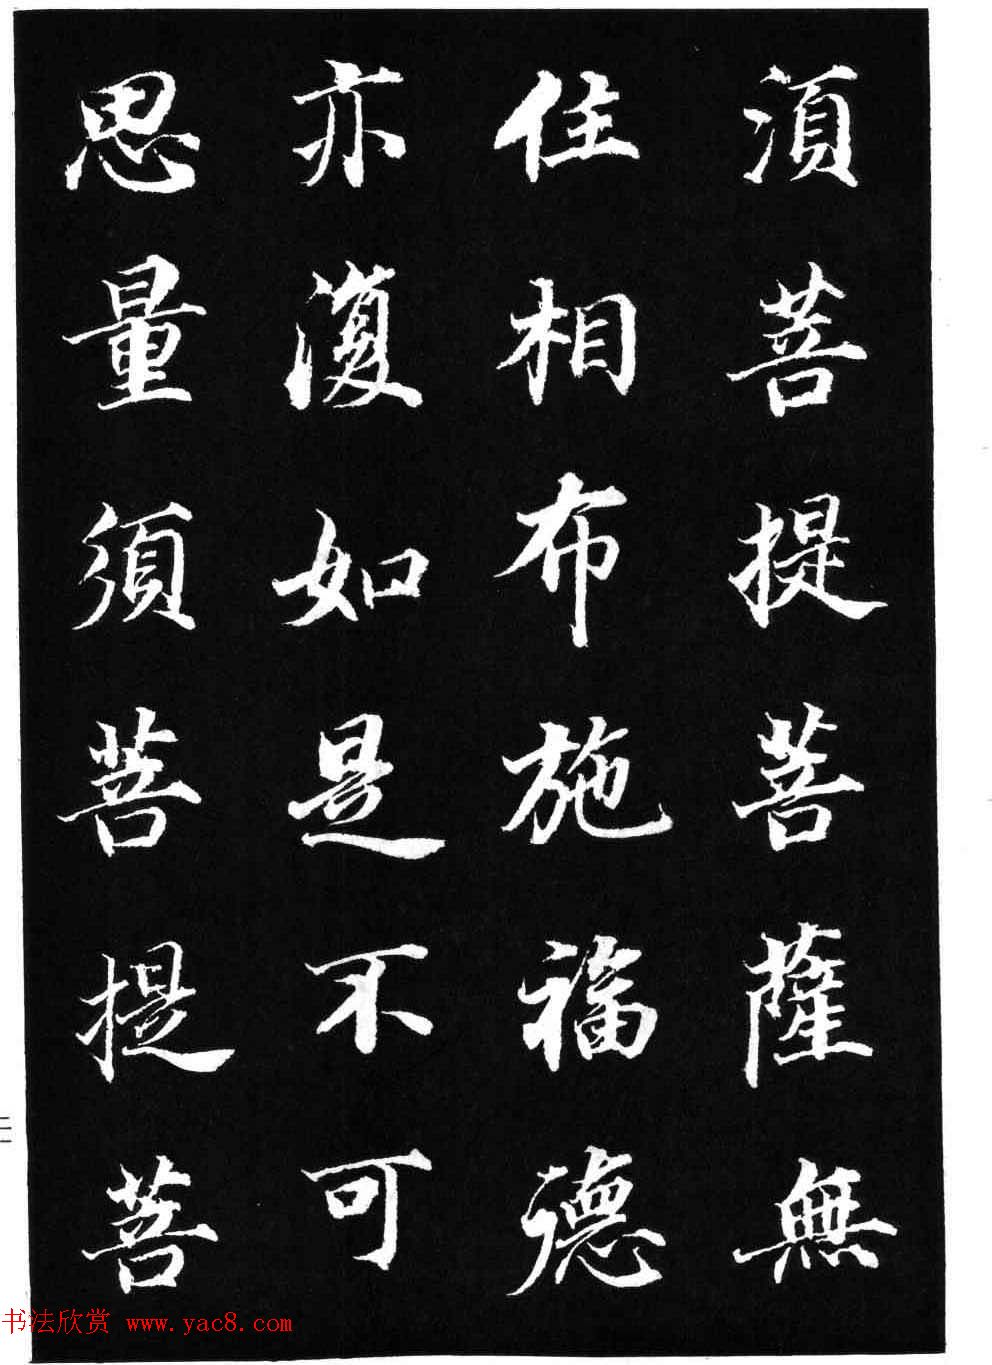 須菩提菩薩無
住相布施福德
亦復如是不可
思量須菩提菩
二一
书法欣赏 www.yac8.com